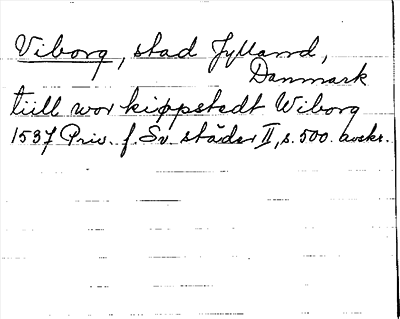 Viborg, stad Jylland,
Danmark
tiill wor kiøpstedt Wiborg
1537 Priv. f. Sv. städer II, s. 500. avskr.